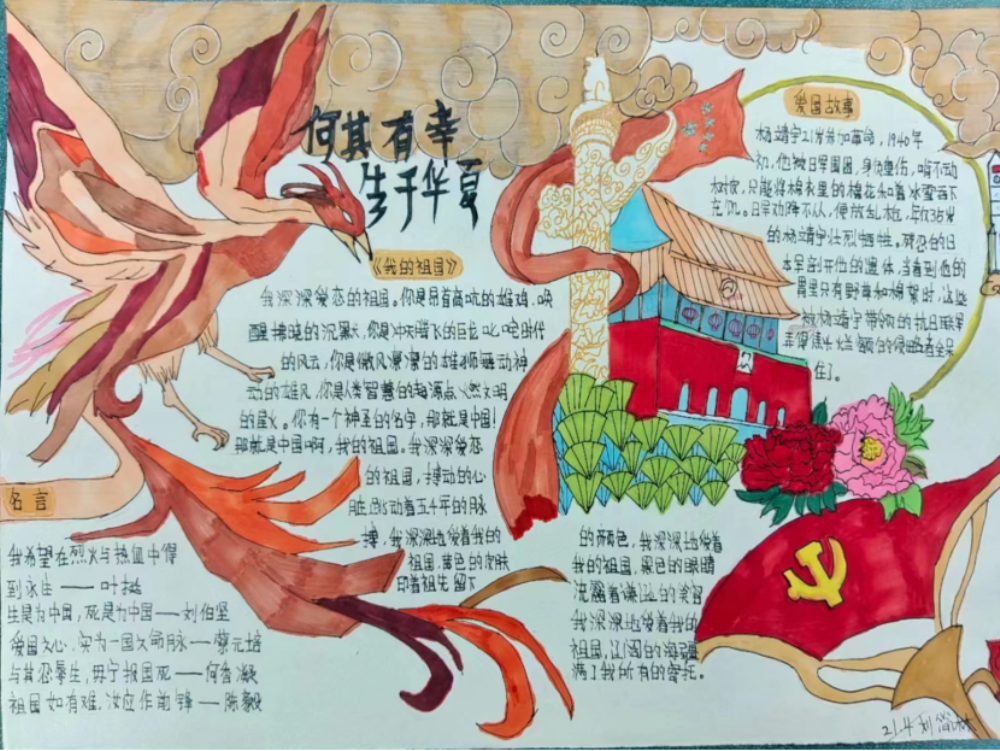 何其有幸
生于华夏
《我的祖国》
我深深爱恋的祖国。你是昂首高吭的雄鸡,唤
醒拂晓的沉默,你是冲天腾飞的巨龙叱咤时代
的风云,你是微风凛凛的雄狮舞动神
动的雄风,你是人类智慧的起源点燃文明
的星火。你有一个神圣的名字,那就是中国!
那就是中国啊,我的祖国。我深深爱恋
的祖国,搏动的心
脏跳动着五千年的脉
搏,我深深地爱着我的
祖国,黄色的皮肤
印着祖先留下
的颜色,我深深地爱着
我的祖国,黑色的眼睛
流露着谦逊的笑容
我深深地爱着我的
祖国,辽阔的海疆
满了我所有的寄托。
爱国故事
杨靖宇21岁参加革命,1940年
初,他被日军围困,身负重伤,啃不动
树皮,只能将棉衣里的棉花和着冰雪吞下
充饥。日军劝降不从,便放乱枪,年仅35岁
的杨靖宇壮烈牺牲。残忍的日
本军剖开他的遗体,当看到他的
胃里只有野草和棉絮时,这些
被杨靖宇带领的抗日联军
弄得焦头烂额的侵略者全呆
住了。
名言
我希望在烈火与热血中得
到永生——叶挺
生是为中国,死是为中国——刘伯坚
爱国之心,实为一国之命脉——蔡元培
与其忍辱生,毋宁报国死——何香凝
祖国如有难,汝应作前锋——陈毅
21.4 刘